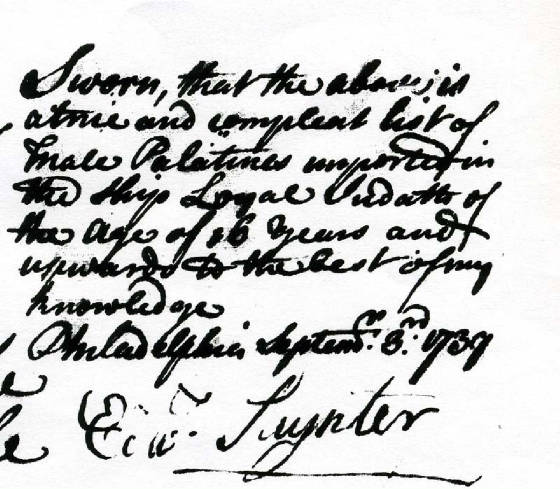 Sworn, that the above is
a true and compleat list of
male Palatines imported in
the ship Loyal Judath of
the age of 16 Years and
upwards to the best of my
knowledge
Philadelphia Septemr. 3rd. 1739
Edwd. Paynter